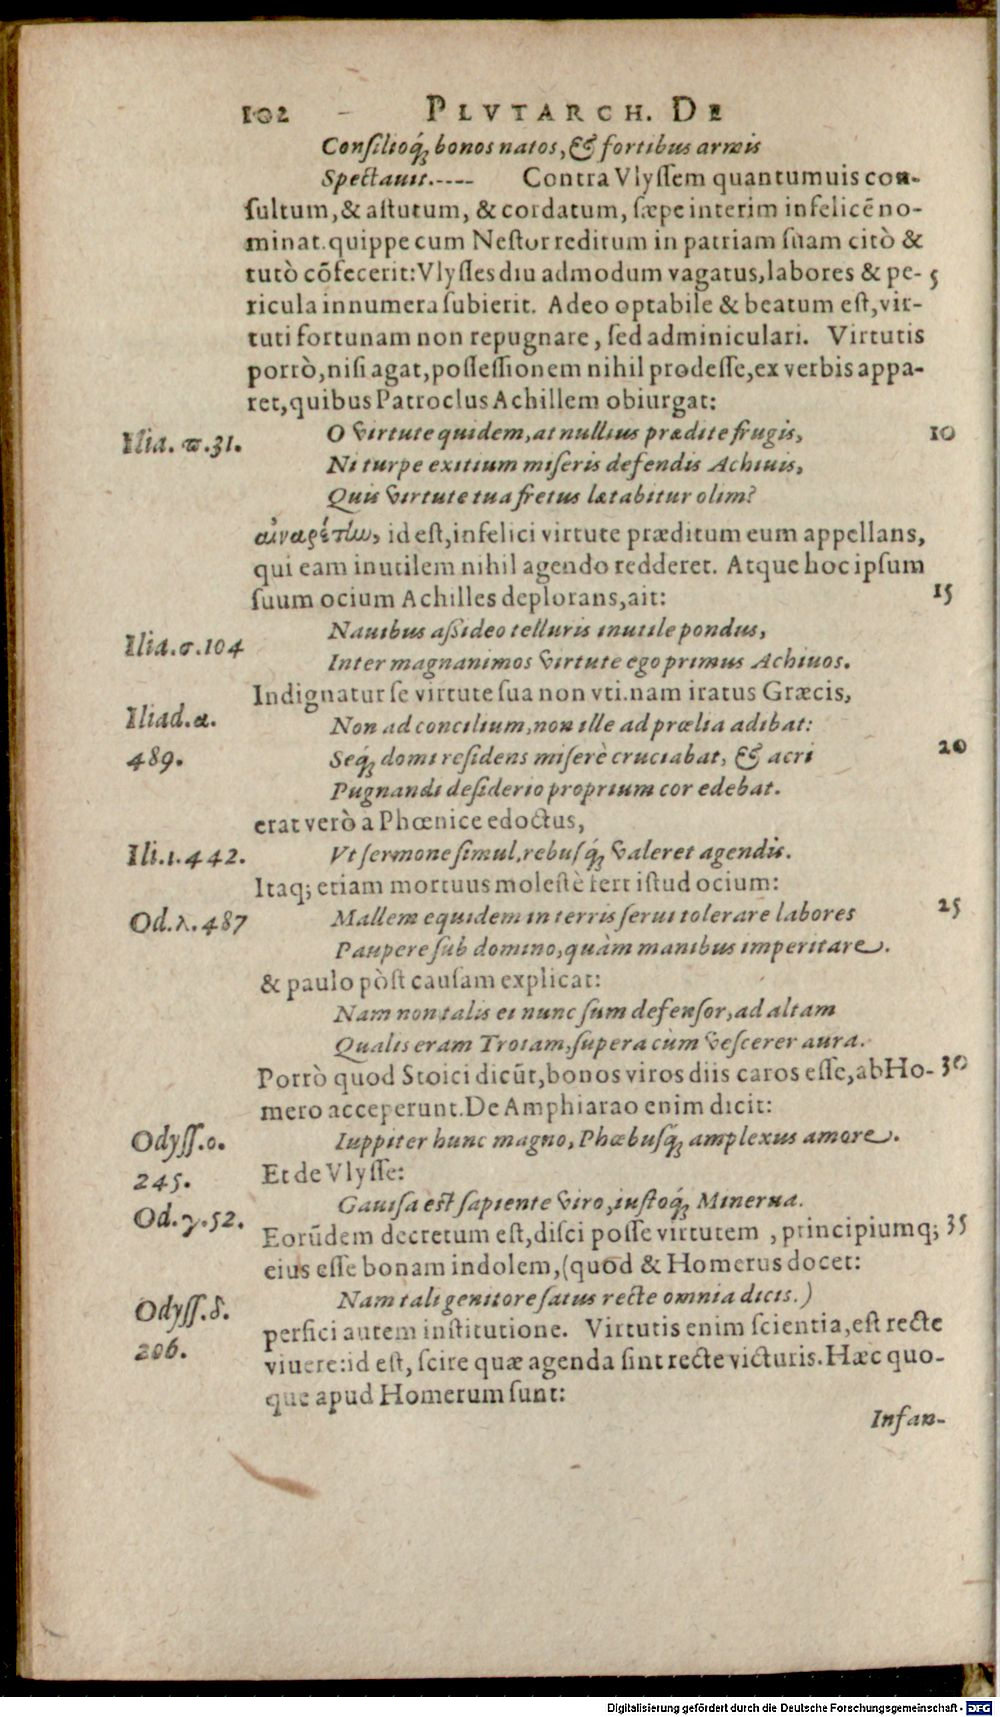 102 PLVTARCH. DE
Consilioq́; bonos natos, & fortibus armis
Spectauit.---- Contra Vlyssem quantumuis con-
sultum, & astutum, & cordatum, sæpe interim infelicē no-
minat. quippe cum Nestor reditum in patriam suam citò &
tutò cōfecerit: Vlysses diu admodum vagatus, labores & pe- 5
ricula innumera subierit. Adeo optabile & beatum est, vir-
tuti fortunam non repugnare, sed adminiculari. Virtutis
porrò, nisi agat, possessionem nihil prodesse, ex verbis appa-
ret, quibus Patroclus Achillem obiurgat:
Ilia. ϖ. 31. O virtute quidem, at nullius prædite frugis, 10
Ni turpe exitium miseris defendis Achiuis,
Quis virtute tua fretus lætabitur olim?
αἰναρέτην, id est, infelici virtute præditum eum appellans,
qui eam inutilem nihil agendo redderet. Atque hoc ipsum
suum ocium Achilles deplorans, ait: 15
Ilia. σ. 104 Nauibus assideo telluris inutile pondus,
Inter magnanimos virtute ego primus Achiuos.
Indignatur se virtute sua non vti. nam iratus Græcis,
Iliad. α. Non ad concilium, non ille ad prœlia adibat:
489. Seq́; domi residens miserè cruciabat, & acri 20
Pugnandi desiderio proprium cor edebat.
erat verò a Phœnice edoctus,
Ili. ι. 442. Vt sermone simul, rebusq́; valeret agendis.
Itaq; etiam mortuus molestè fert istud ocium:
Od. λ. 487 Mallem equidem in terris serui tolerare labores 25
Paupere sub domino, quàm manibus imperitare.
& paulo pòst causam explicat:
Nam non talis ei nunc sum defensor, ad altam
Qualis eram Troiam, supera cùm vescerer aura.
Porrò quod Stoici dicūt, bonos viros diis caros esse, ab Ho- 30
mero acceperunt. De Amphiarao enim dicit:
Odyss. ο. Iuppiter hunc magno, Phœbusq́; amplexus amore.
245. Et de Vlysse:
Od. γ. 52. Gauisa est sapiente viro, iustoq́; Minerua.
Eorūdem decretum est, disci posse virtutem, principiumq; 35
eius esse bonam indolem, (quod & Homerus docet:
Odyss. δ. Nam tali genitore satus recte omnia dicis.)
206. perfici autem institutione. Virtutis enim scientia, est recte
viuere: id est, scire quæ agenda sint recte victuris. Hæc quo-
que apud Homerum sunt:
Infan-
Digitalisierung gefördert durch die Deutsche Forschungsgemeinschaft - DFG